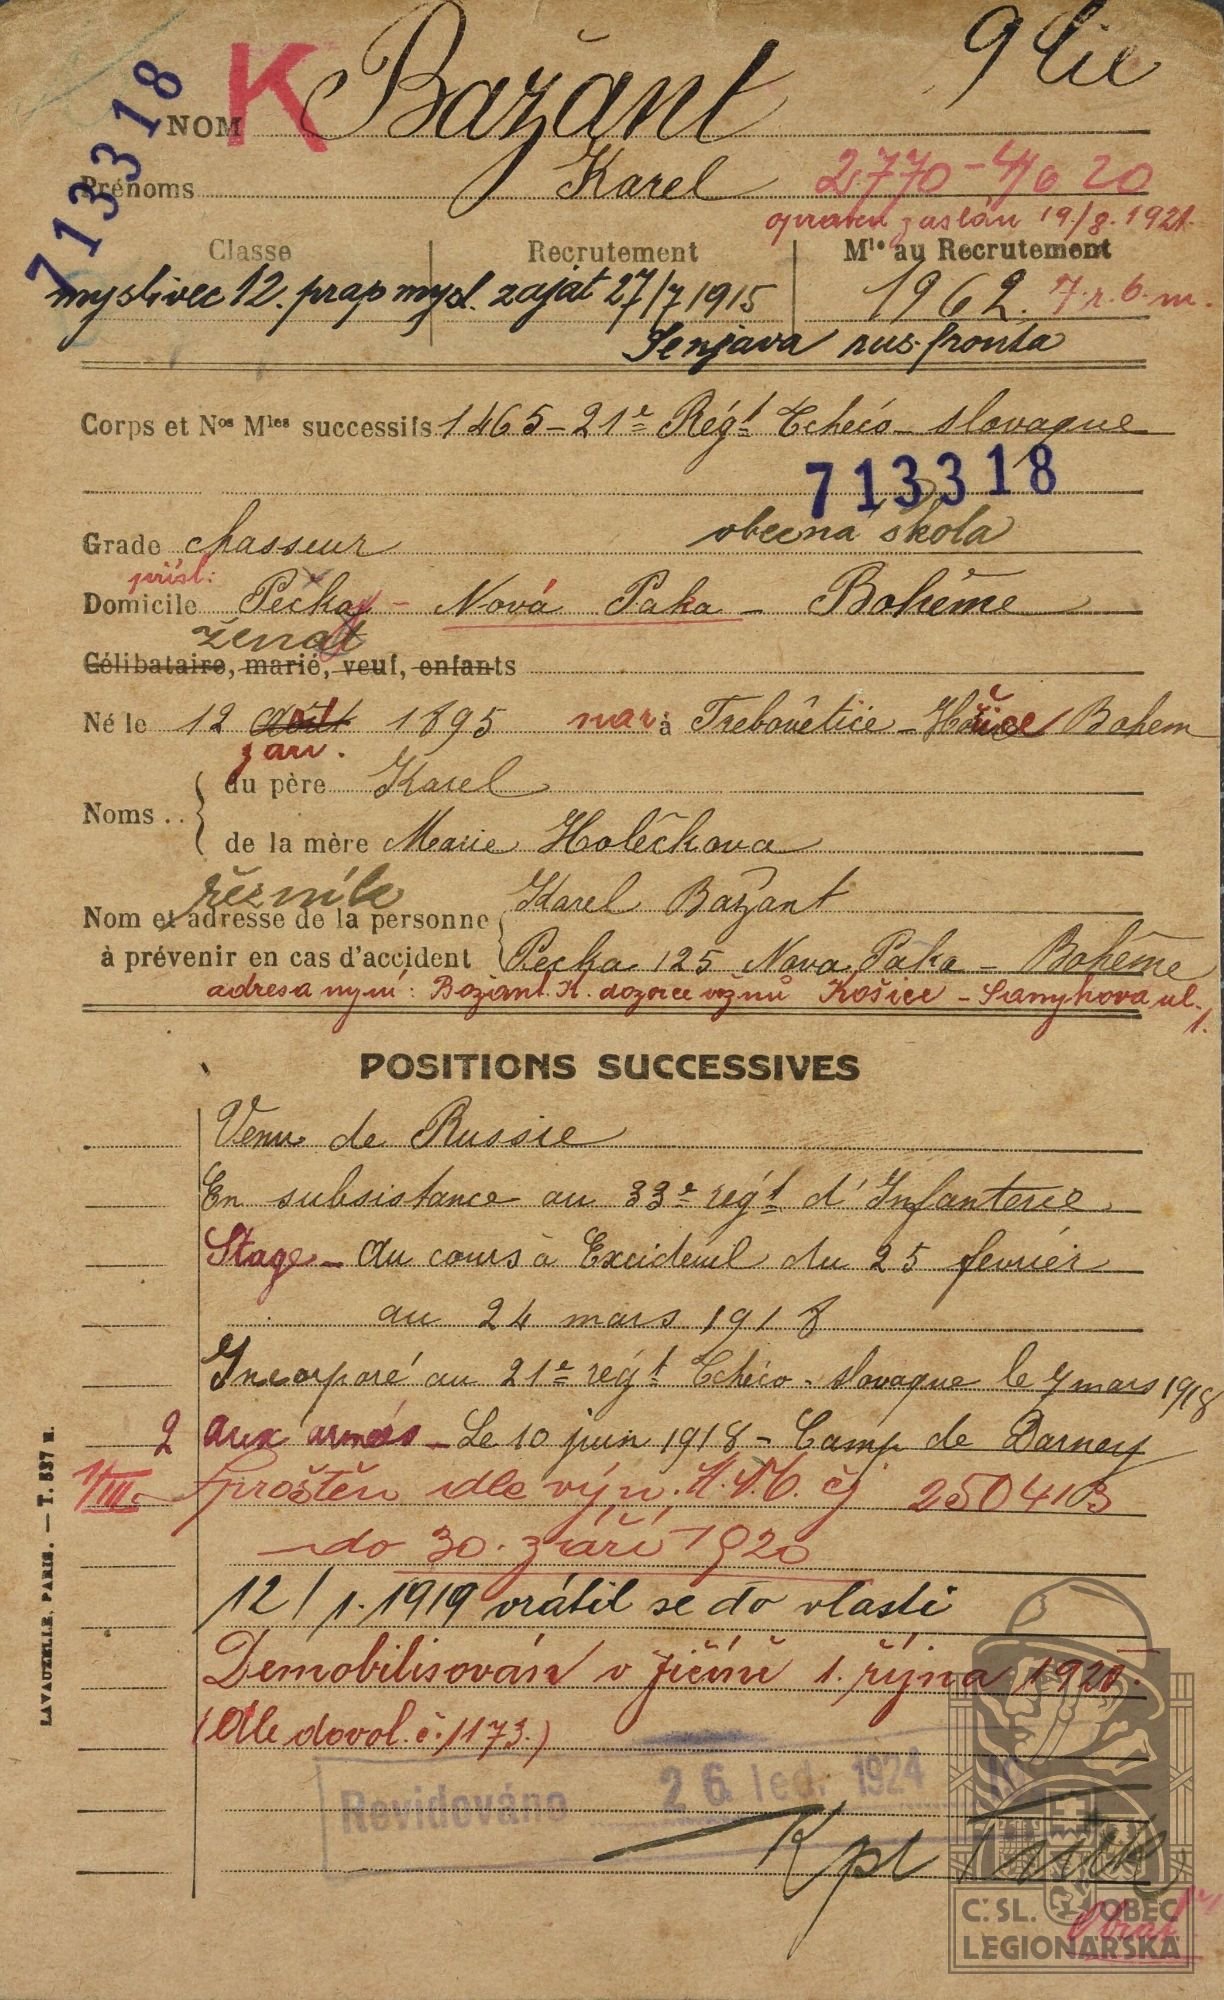 K Bažant
713318
NOM
Prénoms Karel 2770 - 4/6 20
zaslán 19/8. 1921.
Classe Recrutement Mle au Recrutement
myslivec 12. prap mysl. zajat 27/7 1915 1962. 7. r. b. m.
Senjava rus. fronta
Corps et Nos Mles successifs 1465 - 21e Régt Tchéco-slovaque
713318
Grade chasseur obecná škola
přísl:
Domicile Pecka - Nová Paka - Bohême
ženat
Célibataire, marié, veuf, enfants
Né le 12 août 1895 nar: à Trebouëtice - Hořice Bohem
září.
Noms.. du père Karel
de la mère Marie Holečkova
řezník
Nom et adresse de la personne Karel Bažant
à prévenir en cas d'accident Pecka 125 Nova Paka - Bohême
adresa nyní: Bažant K. dozorce vězňů Košice - ul.
1.
POSITIONS SUCCESSIVES
Venu de Russie
En subsistance au 33e régt d'Infanterie
Stage - au cours à Excideuil du 25 février
au 24 mars 1918
Incorporé au 21e régt Tchéco-slovaque le 7 mars 1918
2 aux armées - Le 10 juin 1918 - Camp de Darney
1/III. sproštěn dle výn. M.N.O. čj 250413
do 30. září 1920
12/1. 1919 vrátil se do vlasti
Demobilisován v Jičíně 1. října 1920.
(Dle dovol. č. 1173.)
Revidováno 26. led. 1924
Kpt
Obrat
Č. SL. OBEC
LEGIONÁŘSKÁ
LAVAUZELLE, PARIS. — T. 537 N.